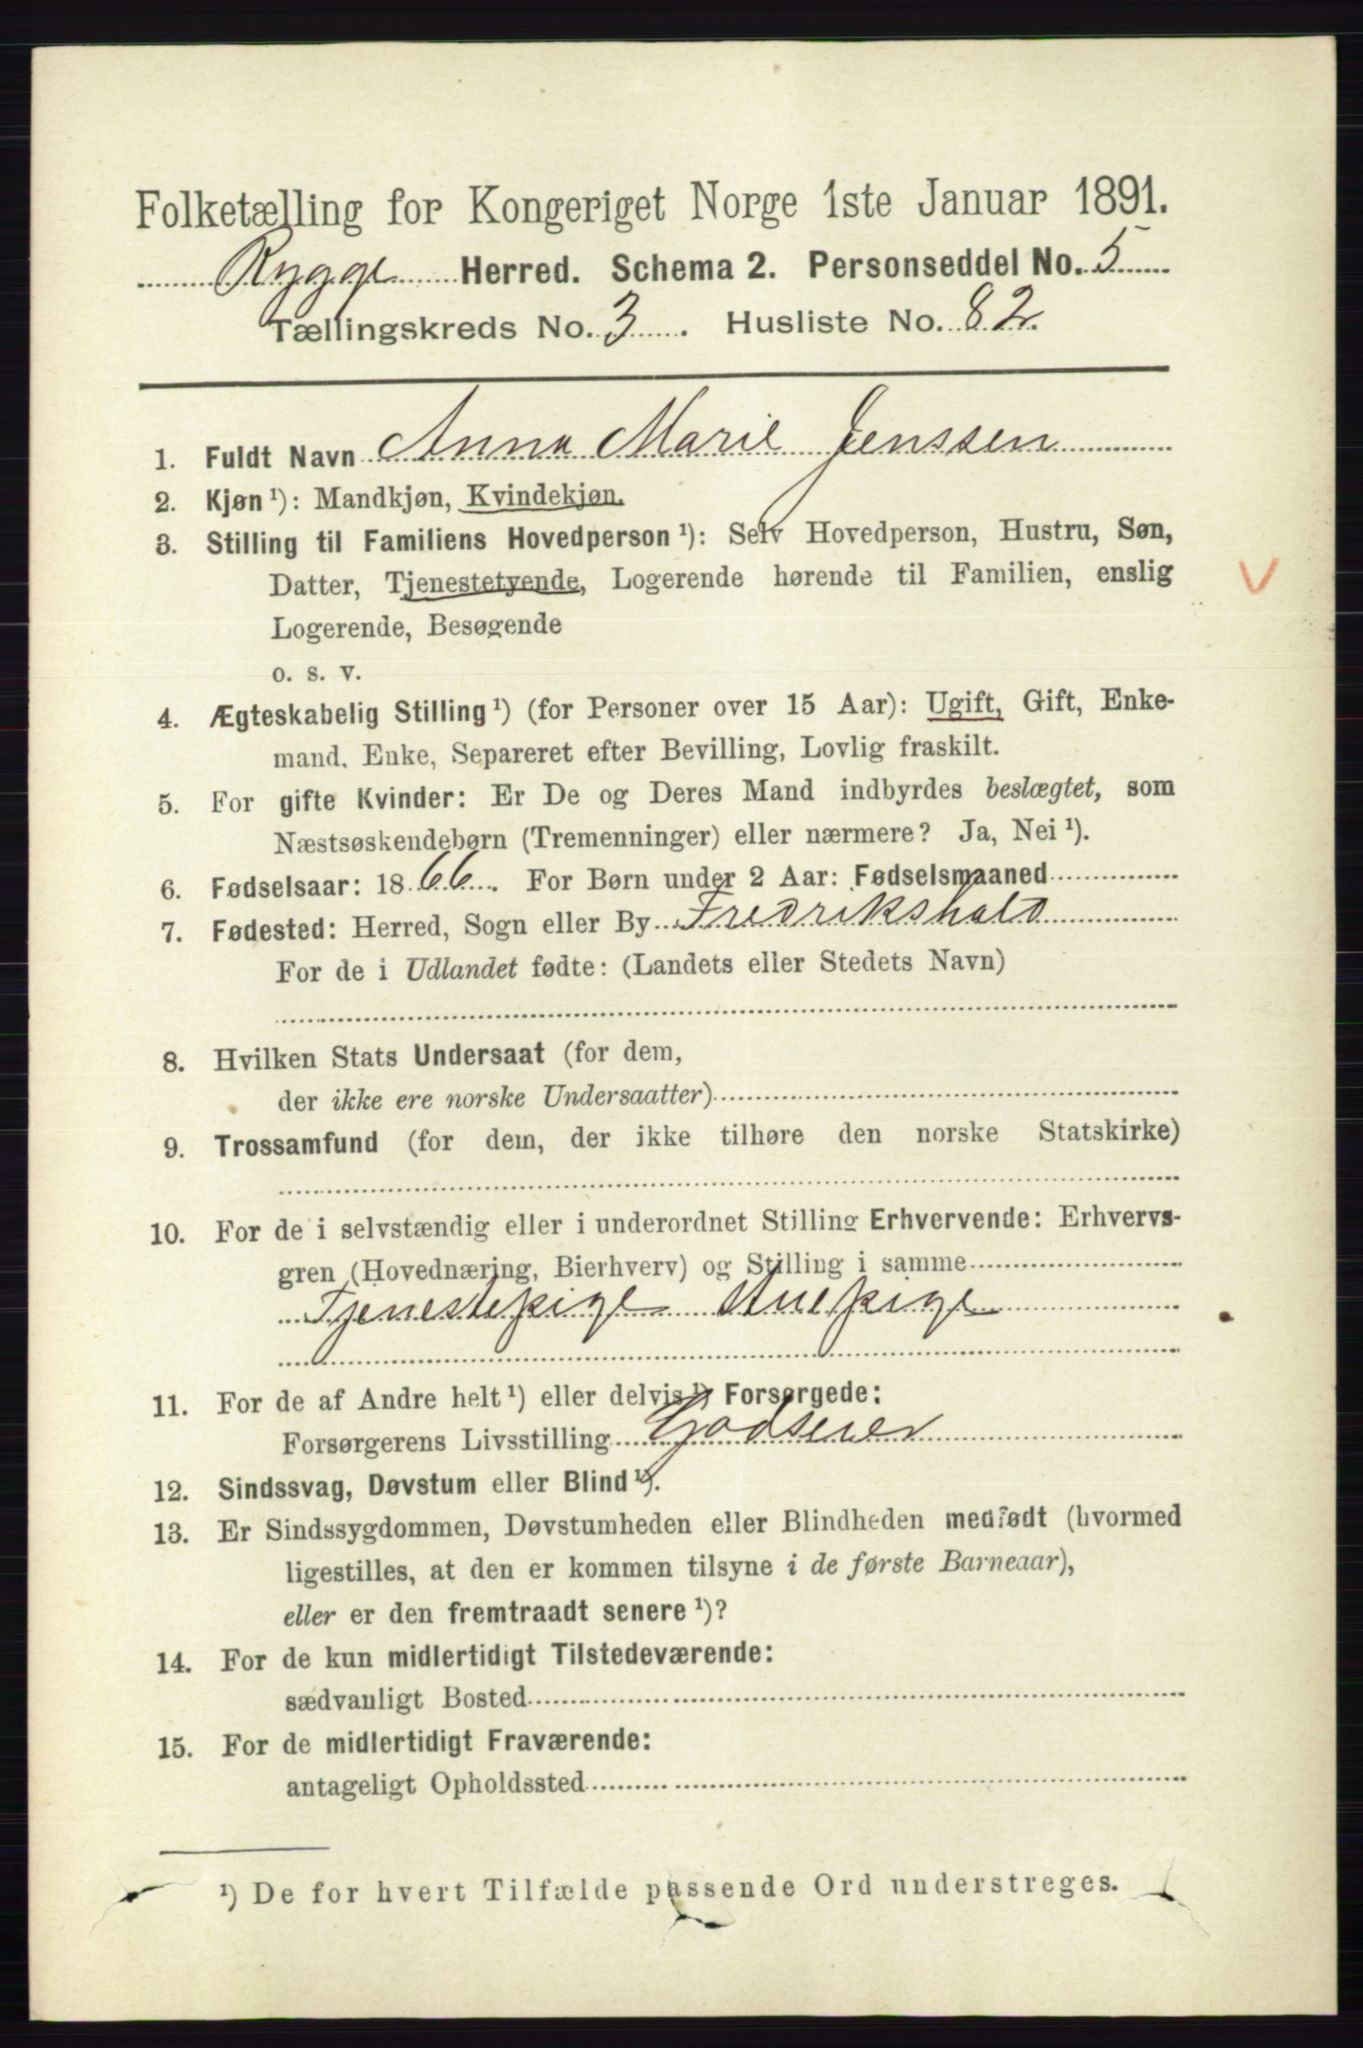 Folketælling for Kongeriget Norge 1ste Januar 1891.
Rygge Herred. Schema 2. Personseddel No. 5
Tællingskreds No. 3. Husliste No. 82.
1. Fuldt Navn Anna Marie Jenssen
2. Kjøn ¹): Mandkjøn, Kvindekjøn.
3. Stilling til Familiens Hovedperson ¹): Selv Hovedperson, Hustru, Søn,
Datter, Tjenestetyende, Logerende hørende til Familien, enslig
Logerende, Besøgende
o. s. v.
4. Ægteskabelig Stilling ¹) (for Personer over 15 Aar): Ugift, Gift, Enke-
mand, Enke, Separeret efter Bevilling, Lovlig fraskilt.
5. For gifte Kvinder: Er De og Deres Mand indbyrdes beslægtet, som
Næstsøskendebørn (Tremenninger) eller nærmere? Ja, Nei ¹).
6. Fødselsaar: 1866. For Børn under 2 Aar: Fødselsmaaned
7. Fødested: Herred, Sogn eller By Fredrikshald
For de i Udlandet fødte: (Landets eller Stedets Navn)
8. Hvilken Stats Undersaat (for dem,
der ikke ere norske Undersaatter)
9. Trossamfund (for dem, der ikke tilhøre den norske Statskirke)
10. For de i selvstændig eller i underordnet Stilling Erhvervende: Erhvervs-
gren (Hovednæring, Bierhverv) og Stilling i samme
Tjenestepige Stuepige
11. For de af Andre helt ¹) eller delvis ¹) Forsørgede:
Forsørgerens Livsstilling Godseier
12. Sindssvag, Døvstum eller Blind ¹).
13. Er Sindssygdommen, Døvstumheden eller Blindheden medfødt (hvormed
ligestilles, at den er kommen tilsyne i de første Barneaar),
eller er den fremtraadt senere ¹)?
14. For de kun midlertidigt Tilstedeværende:
sædvanligt Bosted
15. For de midlertidigt Fraværende:
antageligt Opholdssted
¹) De for hvert Tilfælde passende Ord understreges.